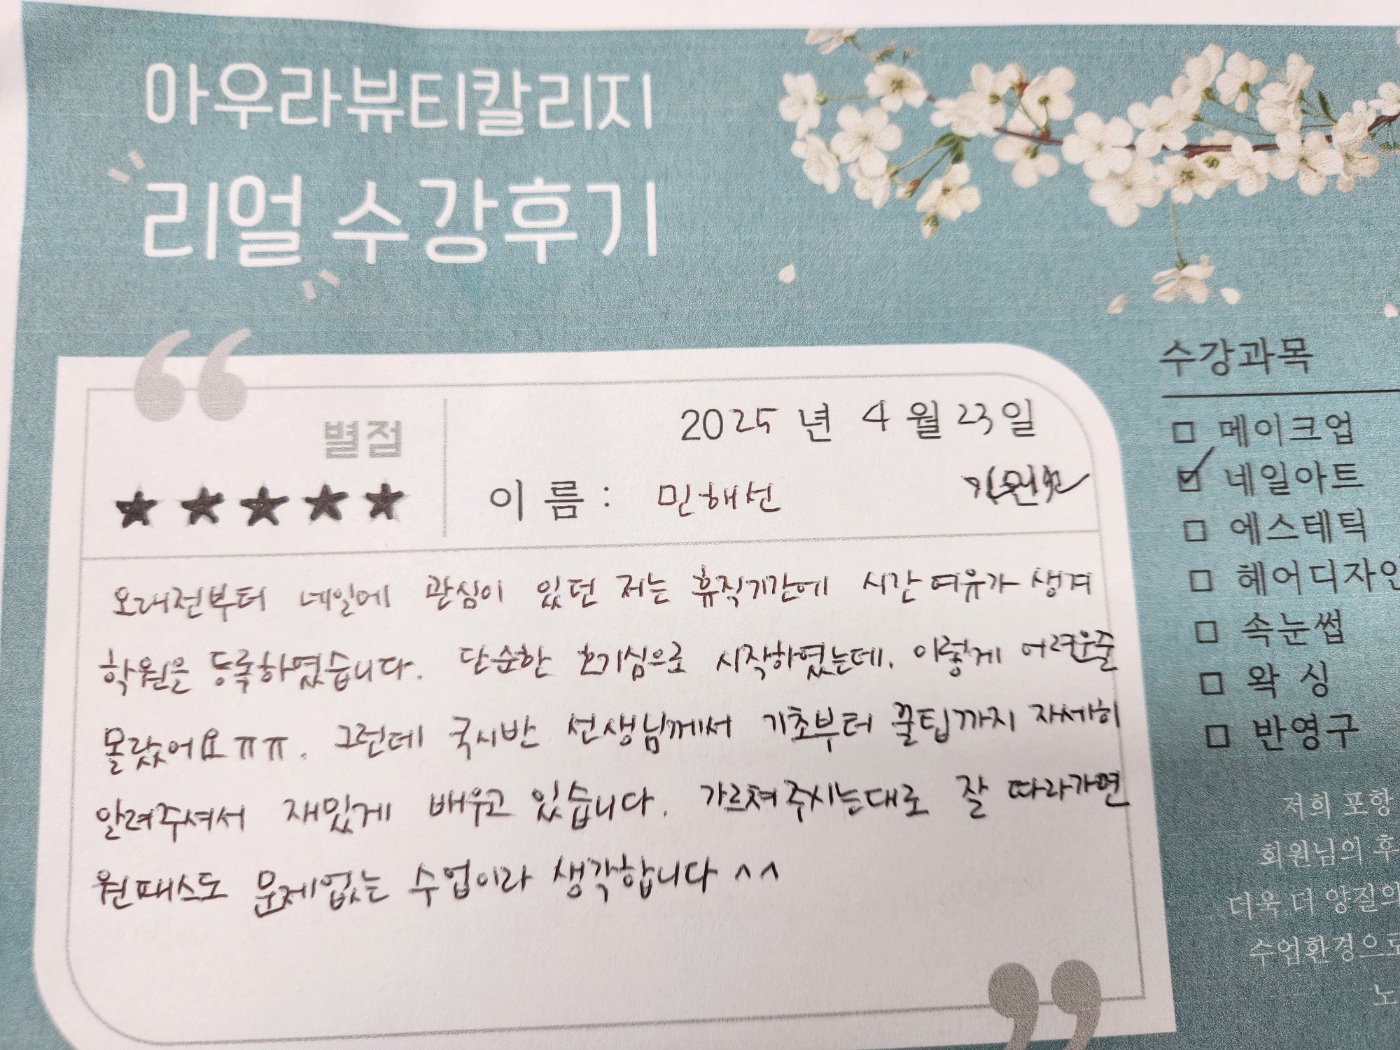 아우라뷰티칼리지
리얼 수강후기
별점
★★★★★
2025 년 4 월 23일
이 름 : 민해선
오래전부터 네일에 관심이 있던 저는 휴직기간에 시간 여유가 생겨
학원을 등록하였습니다. 단순한 호기심으로 시작하였는데, 이렇게 어려운줄
몰랐어요ㅠㅠ. 그런데 국시반 선생님께서 기초부터 꿀팁까지 자세히
알려주셔서 재밌게 배우고 있습니다. 가르쳐주시는대로 잘 따라가면
원패스도 문제없는 수업이라 생각합니다 ^^
수강과목
□ 메이크업
☑ 네일아트
□ 에스테틱
□ 헤어디자인
□ 속눈썹
□ 왁 싱
□ 반영구
저희 포항
회원님의 후
더욱 더 양질의
수업환경으로
노